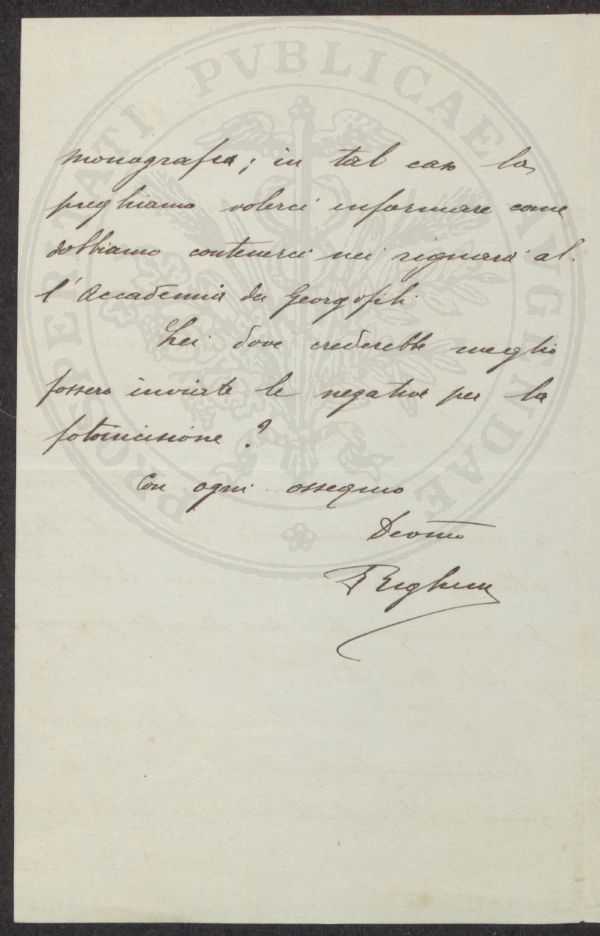 PROSPERITATI PVBLICAE AVGENDAE
monografia; in tal caso la
preghiamo volerci informare come
dobbiamo contenerci nei riguardi al-
l'Accademia dei Georgofili.
Lei dove crederebbe meglio
fossero inviate le negative per la
fotoincisione?
Con ogni ossequio
Devmo